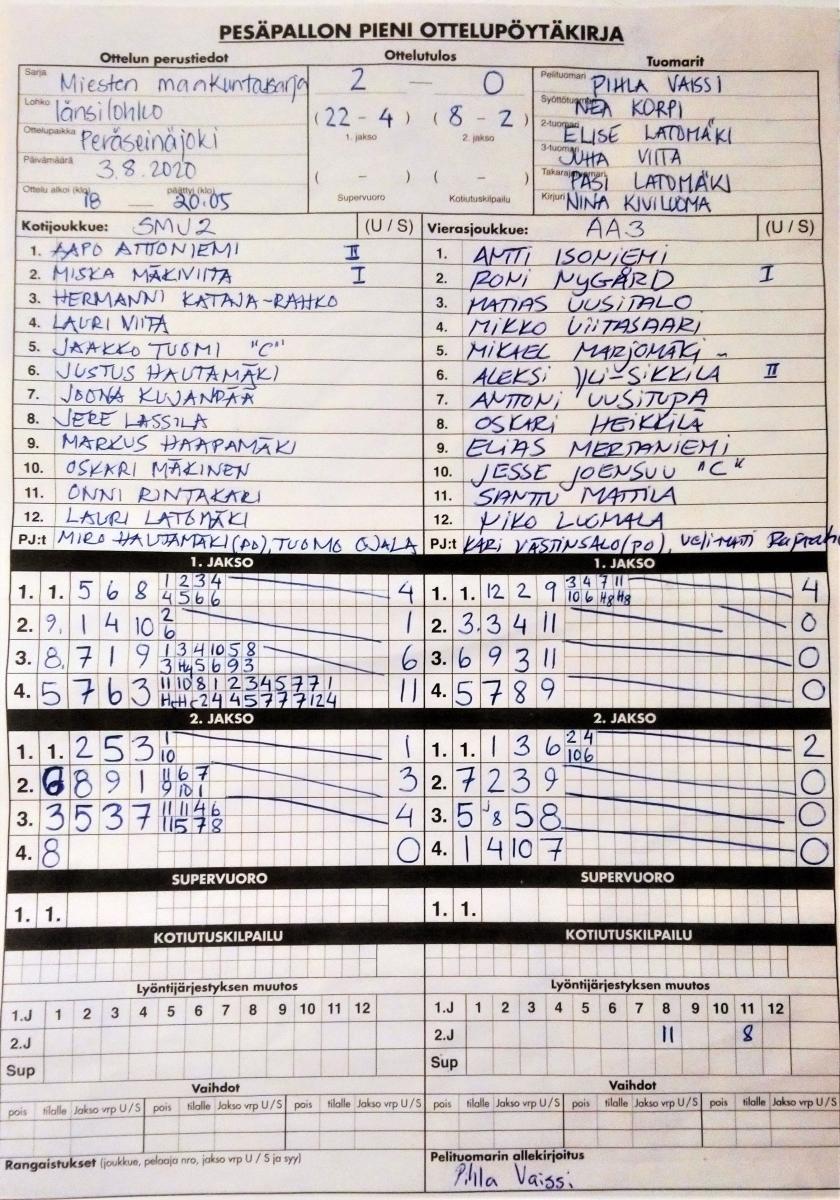 PESÄPALLON PIENI OTTELUPÖYTÄKIRJA
Ottelun perustiedot Ottelutulos Tuomarit
Sarja Miesten mankuntasarja 2 — 0 Pelituomari PIHLA VAISSI
Lohko länsilohko (22 - 4) (8 - 2) NEA KORPI
1. jakso 2. jakso 2-tuomari ELISE LATOMÄKI
Ottelupaikka Peräseinäjoki
Päivämäärä 3.8.2020 ( - ) ( - ) 3-tuomari JUHA VIITA
PASI LATOMÄKI
Ottelu alkoi (klo) 18 — päättyi (klo) 20.05 Supervuoro Kotiutuskilpailu Kirjuri NINA KIVILUOMA
Kotijoukkue: SMU2 (U / S) Vierasjoukkue: AA3 (U / S)
1. AAPO ATTONIEMI II 1. ANTTI ISONIEMI
2. MISKA MÄKIVIITA I 2. RONI NYGÅRD I
3. HERMANNI KATAJA-RAHKO 3. MATIAS UUSITALO
4. LAURI VIITA 4. MIKKO VIITASAARI
5. JAAKKO TUOMI "C" 5. MIKAEL MARJOMÄKI
6. JUSTUS HAUTAMÄKI 6. ALEKSI YLI-SIKKILÄ II
7. JOONA KUJANPÄÄ 7. ANTTONI UUSITUPA
8. JERE LASSILA 8. OSKARI HEIKKILÄ
9. MARKUS HAAPAMÄKI 9. ELIAS MERTANIEMI
10. OSKARI MÄKINEN 10. JESSE JOENSUU "C"
11. ONNI RINTAKARI 11. SANTTU MATTILA
12. LAURI LATOMÄKI 12. NIKO LUOMALA
PJ:t MIRO HAUTAMÄKI (PO), TUOMO OJALA PJ:t KARI VÄSTINSALO (PO), Velimatti
1. JAKSO 1. JAKSO
1. 1. 5 6 8 1 2 3 4 4 1. 1. 12 2 9 3 4 7 11 4
4 5 6 6 10 6 H8 H8
2. 9. 1 4 10 2 1 2. 3. 3 4 11 0
6
3. 8. 7 1 9 1 3 4 10 5 8 6 3. 6 9 3 11 0
3 H4 5 6 9 3
4. 5 7 6 3 11 10 8 1 2 3 4 5 7 7 1 11 4. 5 7 8 9 0
2 4 4 5 7 7 7 12 4
2. JAKSO 2. JAKSO
1. 1. 2 5 3 1 1 1. 1. 1 3 6 2 4 2
10 10 6
2. 6 8 9 1 11 6 7 3 2. 7 2 3 9 0
9 10 1
3. 3 5 3 7 11 11 4 6 4 3. 5 J8 5 8 0
11 5 7 8
4. 8 0 4. 1 4 10 7 0
SUPERVUORO SUPERVUORO
1. 1. 1. 1.
KOTIUTUSKILPAILU KOTIUTUSKILPAILU
Lyöntijärjestyksen muutos Lyöntijärjestyksen muutos
1.J 1 2 3 4 5 6 7 8 9 10 11 12 1.J 1 2 3 4 5 6 7 8 9 10 11 12
2.J 2.J 11 8
Sup Sup
Vaihdot Vaihdot
pois tilalle Jakso vrp U / S pois tilalle Jakso vrp U / S pois tilalle Jakso vrp U / S pois tilalle Jakso vrp U / S pois tilalle Jakso vrp U / S pois tilalle Jakso vrp U / S
Rangaistukset (joukkue, pelaaja nro, jakso vrp U / S ja syy) Pelituomarin allekirjoitus
Pihla Vaissi